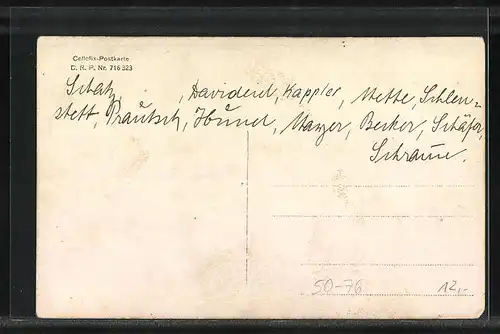 Cellofix-Postkarte
D. R. P. Nr. 716323
Schatz, Davidend, Kappler, Mette, Schlen=
stett, Prautsch, Hunnel, Manzer, Becker, Schäfer,
Schramm.
50-76 12,-